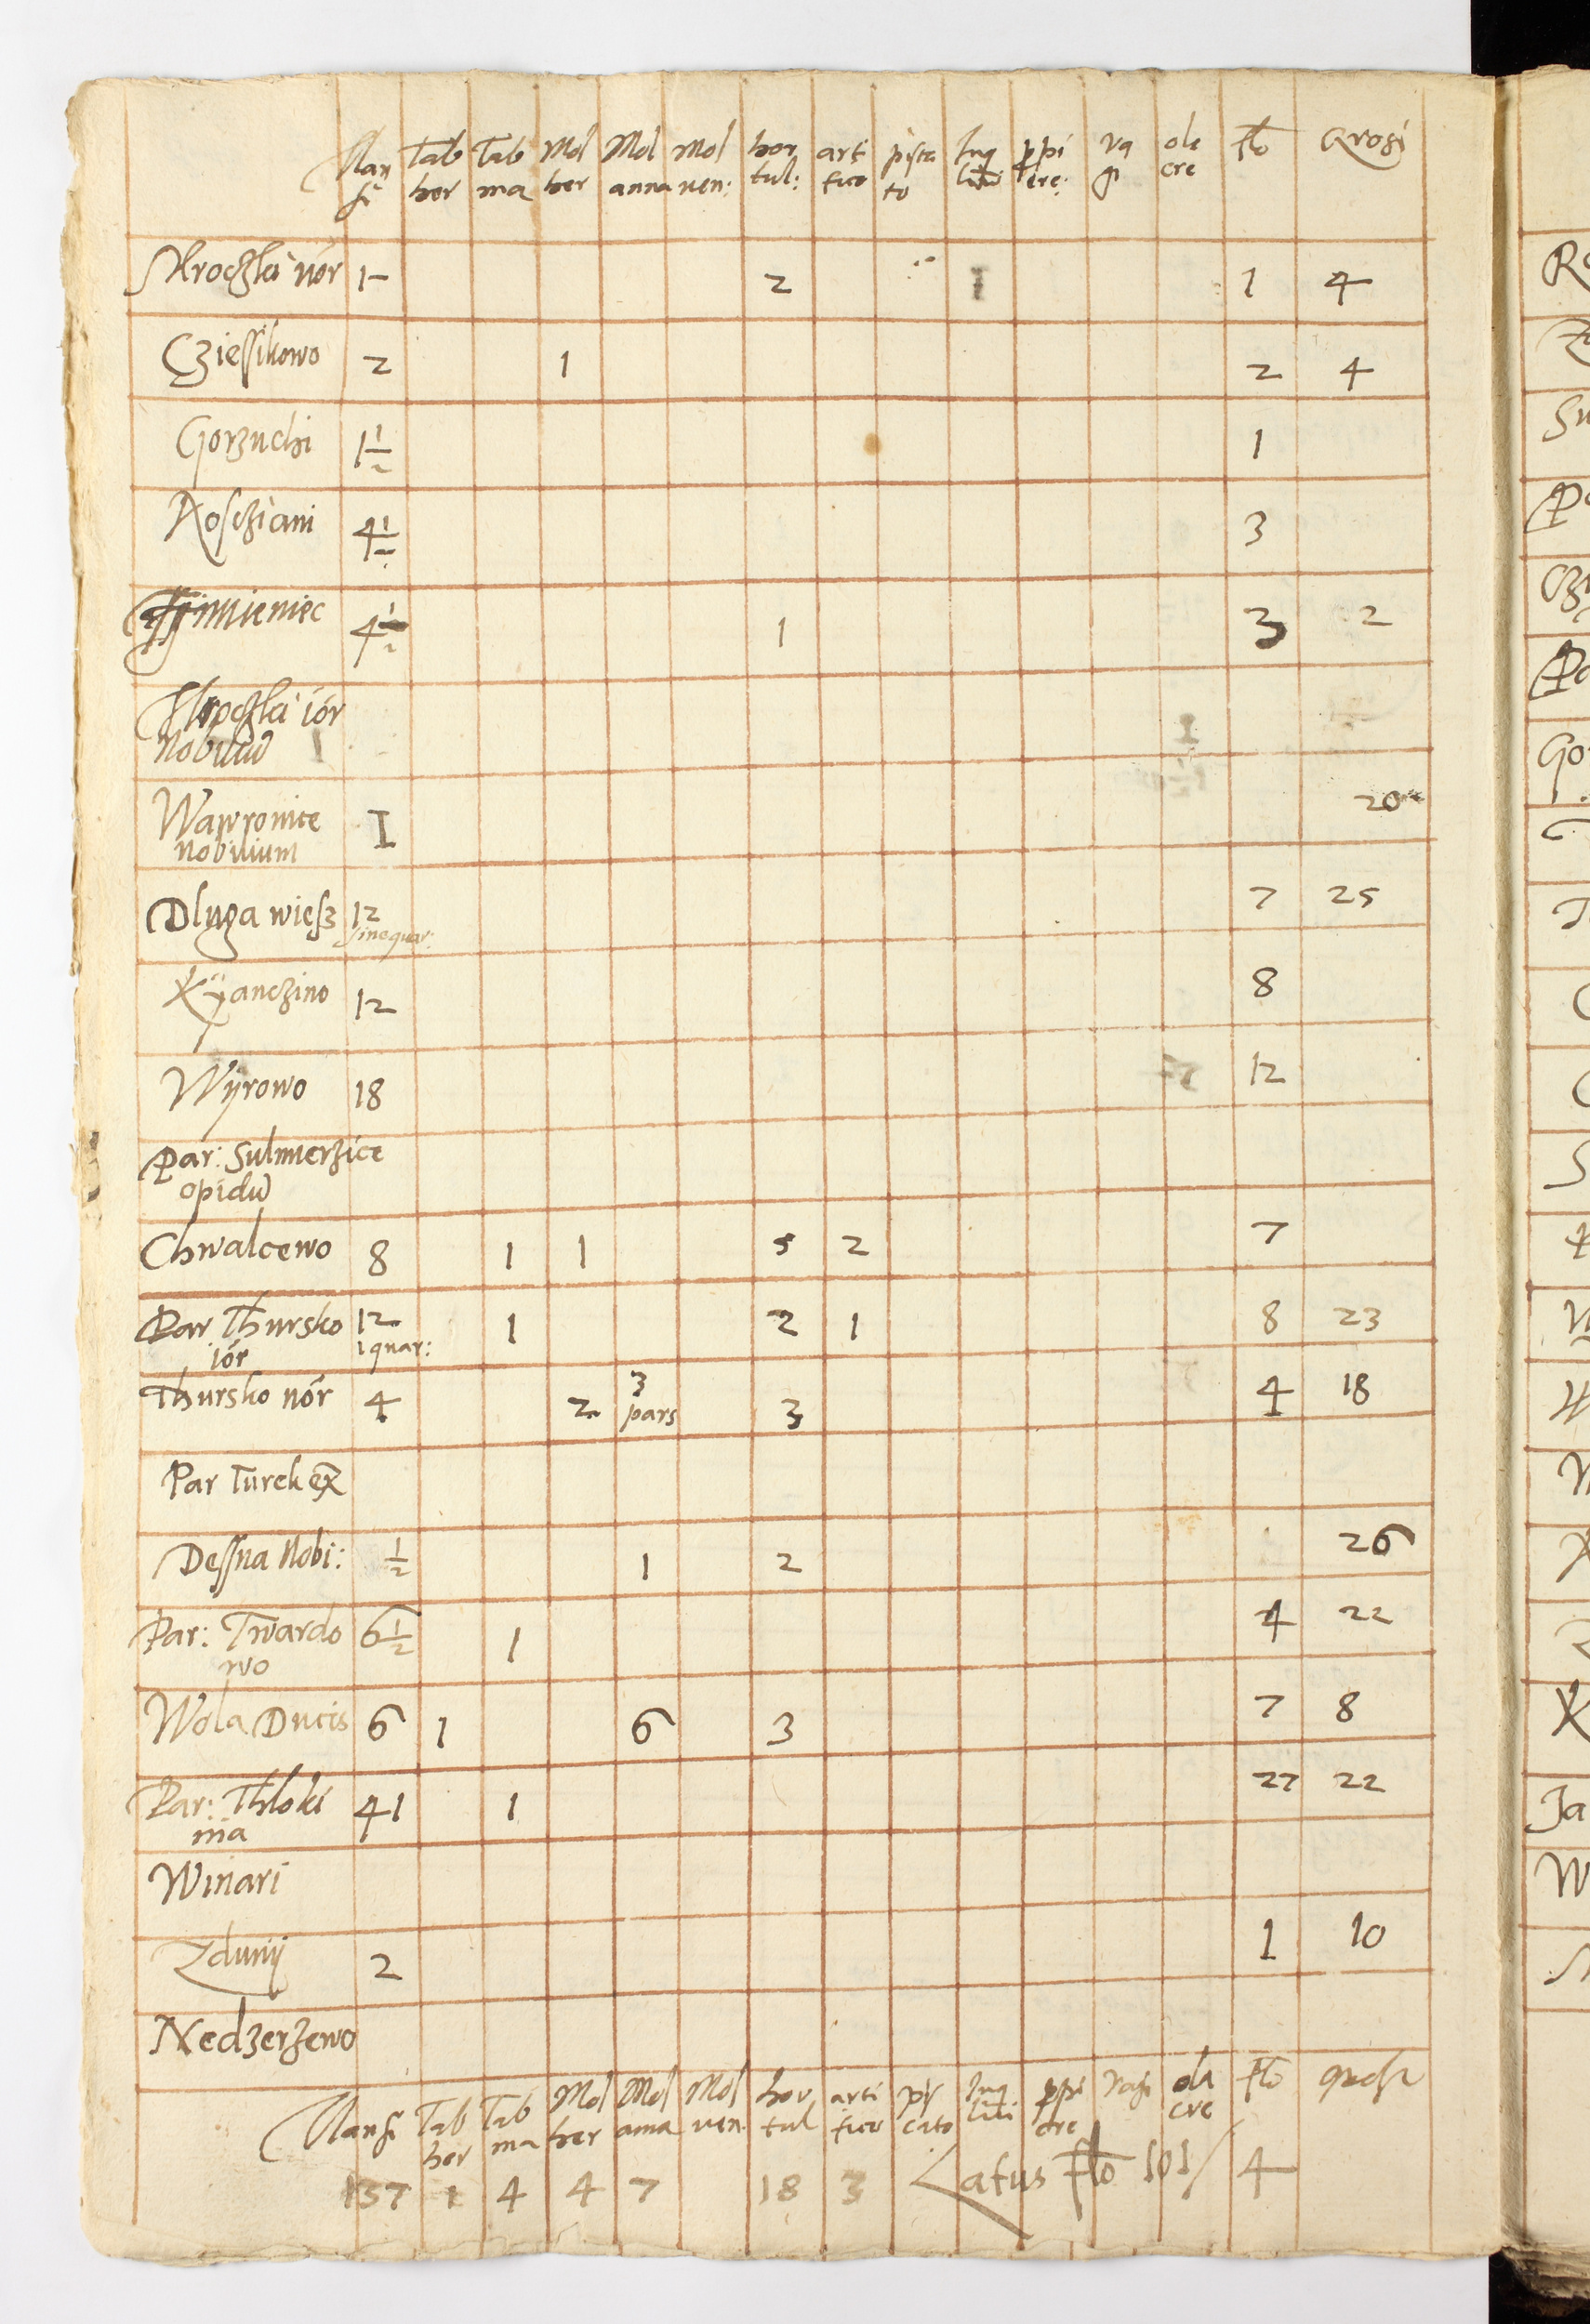 Mansi Tab her Tab ma Mol her Mol anna Mol ven: hor tul: arti fico pisca to Inq lini ppi ere: va gi ole cre flo Grosi
Mroczki nor 1 2 1 1 4
Cziessikowo 2 1 2 4
Gorzuchi 1 1/2 1
Kosczani 4 1/2 3
4 1/2 1 3 2
ior
Nobiliu 1
Wawronice I 20
nobilium
Dluga wiess 12 7 25
sine quar:
Kyanczino 12 8
Wyrowo 18 12
Par: Sulmierzice
opidu
Chwalcewo 8 1 1 5 2 7
Par Thursko 12 1 2 1 8 23
ior 1 quar:
Thursko nor 4 2 3 pars 3 4 18
Par Turek ex
Dessna Nobi: 1/2 1 2 26
Par: Twardo 6 1/2 1 4 22
wo
Wola Ducis 6 1 6 3 7 8
Par: Thloki 41 1 27 22
nia
Winari
Zduny 2 1 10
Nedzerzewo
Mansi Tab her Tab ma Mol her Mol anna Mol ven. hor tul arti fico pis cato Inq lini ppi ere vagi ole cre flo
137 1 4 4 7 18 3 Latus flo 101/4